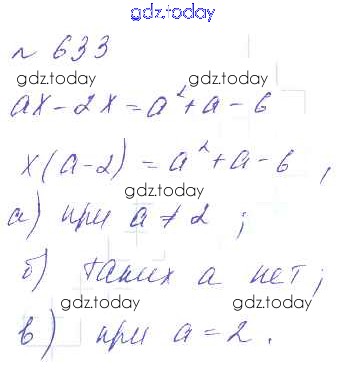 gdz.today
№ 633
gdz.today gdz.today
ax - 2x = a² + a - 6
x(a-2) = a² + a - 6,
gdz.today
а) при a ≠ 2;
б) таких a нет;
gdz.today gdz.today
в) при a = 2.
gdz.today